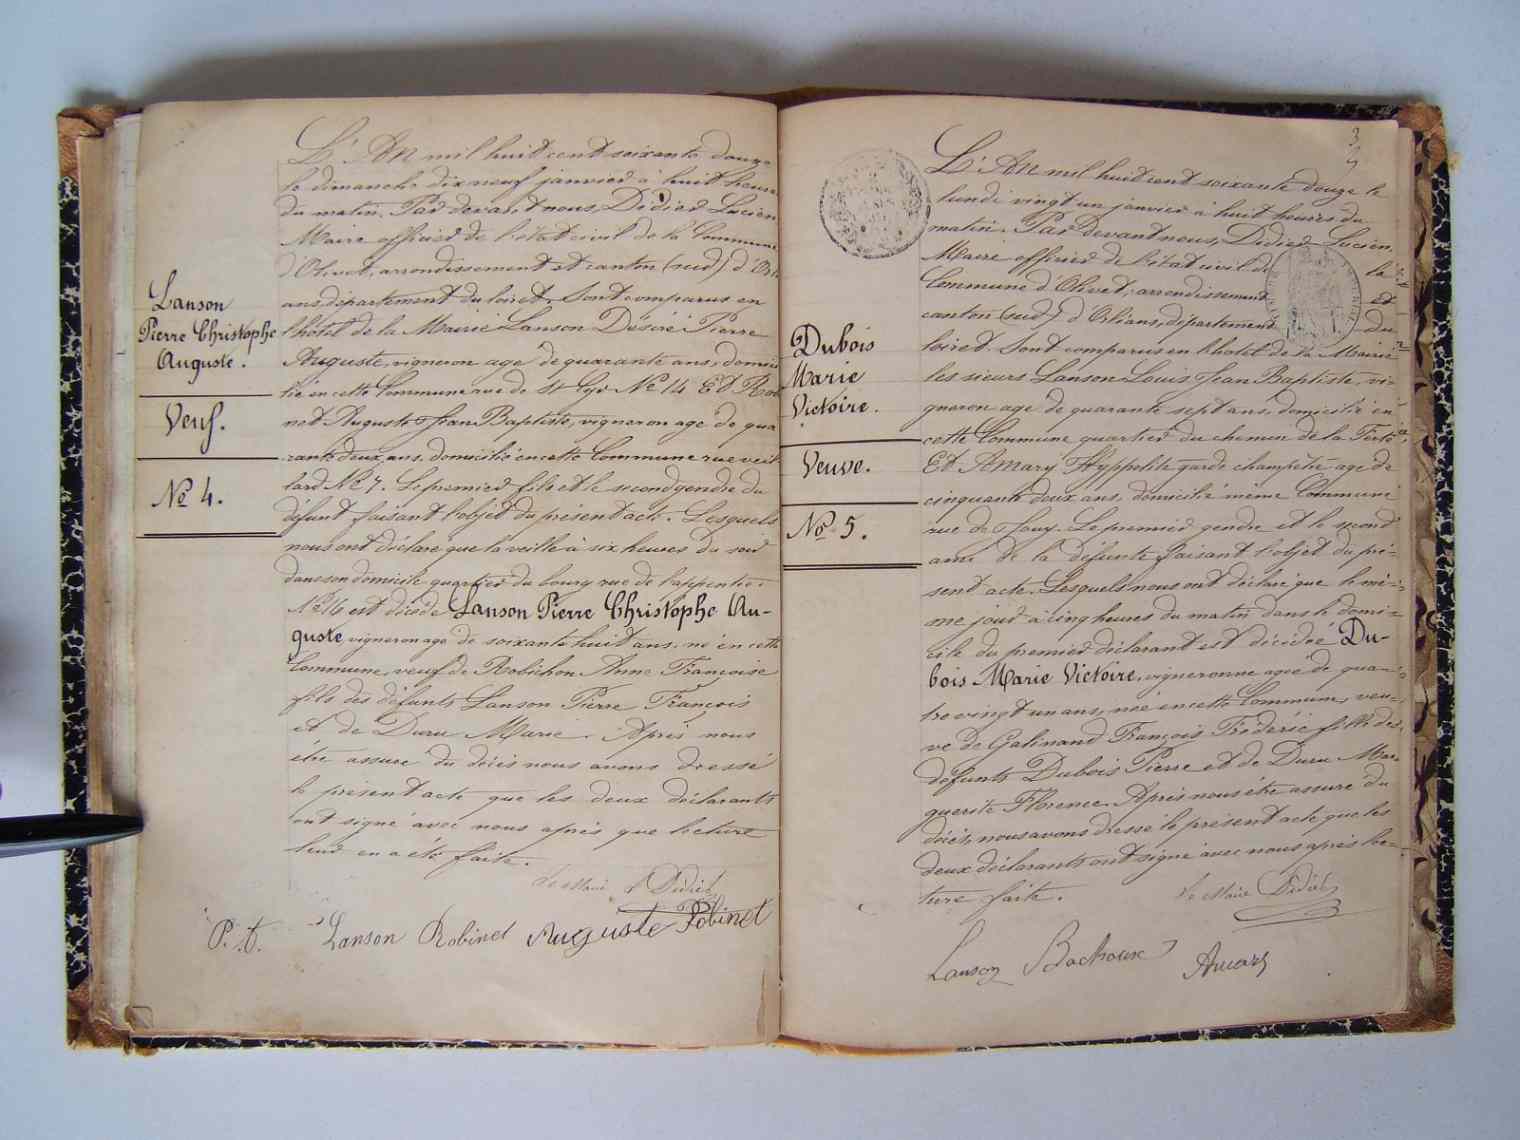 Lanson
Pierre Christophe
Auguste.
Veuf.
Nº 4.
L'An mil huit cent soixante douze
le dimanche dix neuf janvier à huit heures
du matin. Par devant nous, Didier Lucien
Maire officier de l'état civil de la Commune
d'Olivet, arrondissement et canton (sud) d'Orlé
ans, département du loiret, Sont comparus en
l'hôtel de la Mairie Lanson Désiré Pierre
Auguste, vigneron agé de quarante ans, domici
lié en cette Commune rue de St Cyr Nº 14 Et Robi
net Auguste Jean Baptiste, vigneron agé de qua
rante deux ans, domicilié en cette Commune rue veil
lard Nº 7. Le premier fils et le second gendre du
défunt faisant l'objet du présent acte. Lesquels
nous ont déclaré que la veille à six heures du soir
dans son domicile quartier du bourg rue de
Nº 16 est décédé Lanson Pierre Christophe Au-
guste vigneron agé de soixante huit ans, né en cette
Commune, veuf de Robichon Anne Françoise
fils des défunts Lanson Pierre François
et de Duru Marie. Après nous
être assuré du décès nous avons dressé
le présent acte que les deux déclarants
ont signé avec nous après que lecture
leur en a été faite.
Le Maire Didier
P. A. Lanson Robinet Auguste Robinet
3
Dubois
Marie
Victoire.
Veuve.
Nº 5.
L'An mil huit cent soixante douze le
lundi vingt un janvier à huit heures du
matin. Par devant nous, Didier Lucien,
Maire officier de l'état civil de la
Commune d'Olivet, arrondissement et
canton (sud) d'Orléans, département du
loiret. Sont comparus en l'hotel de la Mairie
les sieurs Lanson Louis Jean Baptiste, vi-
gneron agé de quarante sept ans, domicilié en
cette Commune quartier du chemin de la Ferté,
Et Amary Hyppolite garde champêtre agé de
cinquante deux ans, domicilié même Commune
rue de Jouy. Le premier gendre et le second
ami de la défunte faisant l'objet du pré-
sent acte. Lesquels nous ont déclaré que le mê-
me jour à cinq heures du matin dans le domi-
cile du premier déclarant est décédée Du-
bois Marie Victoire, vigneronne agée de qua-
tre vingt un ans, née en cette Commune, veu-
ve de Galinand François Frédéric fille des
défunts Dubois Pierre et de Duru Mar-
guerite Florence. Après nous être assuré du
décès, nous avons dressé le présent acte que les
deux déclarants ont signé avec nous après lec-
ture faite. Le Maire Didier
Lanson Bachoux Amary